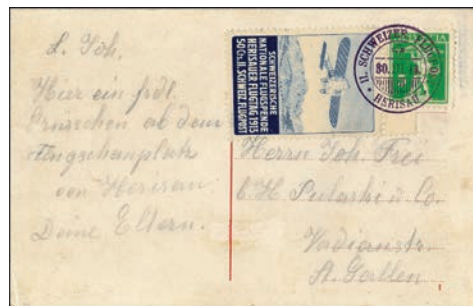 L. Joh.
Hier ein frdl.
Grüsschen ab dem
Flugschauplatz
von Herisau.
Deine Eltern.
SCHWEIZERISCHE
NATIONALE FLUGSPENDE
HERISAUER FLUGTAG 1913
50 Cts. II. SCHWEIZ. FLUGPOST
II. SCHWEIZER
HERISAU
Herrn Joh. Frei
b/H. Pulaski & Co.
Vadianstr.
St. Gallen